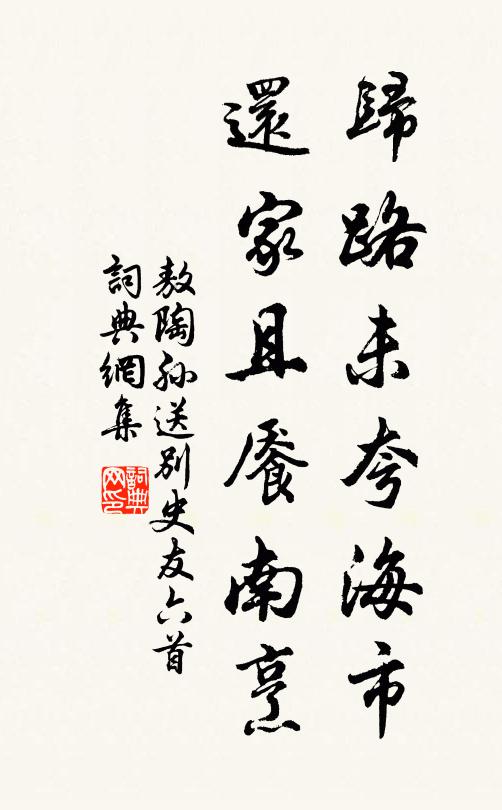 歸路未夸海市
還家且饜南烹
敖陶孫送别史友六首
詞典網集
詞典网印